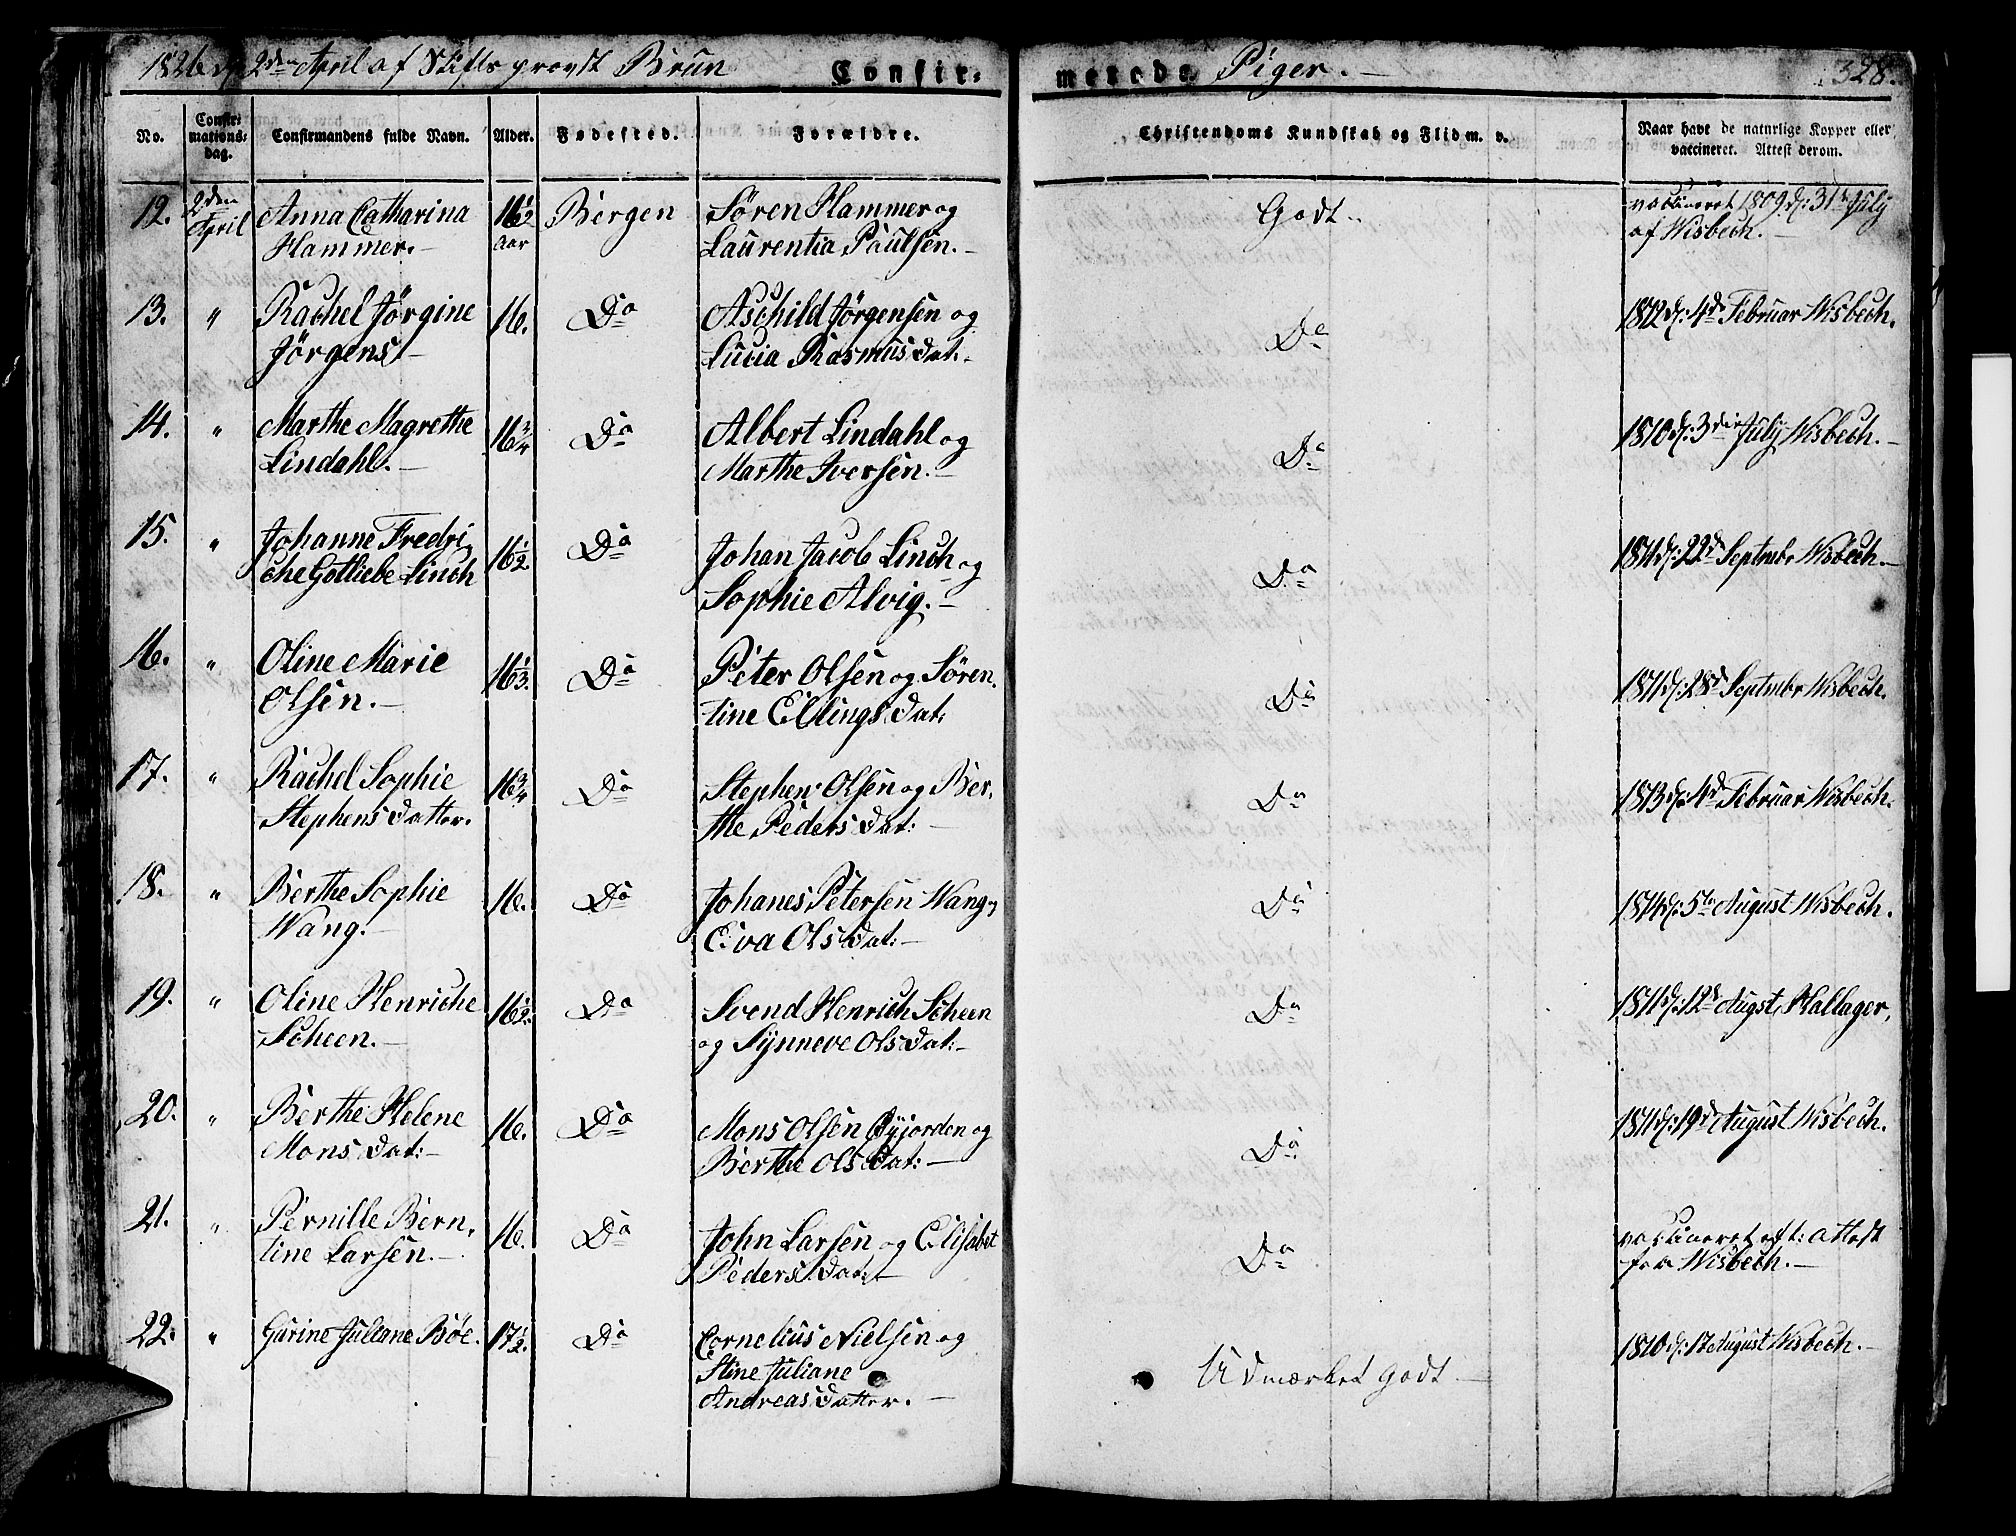 1826 d: 2den April af Stiftsprovst Brun Confir-
merede Piger. 328.
No.
Confir-
mations-
dag.
Confirmandens fulde Navn.
Alder.
Fødested.
Forældre.
Christendoms Kundskab og Flid m. v.
Naar havt de naturlige Kopper eller
vaccineret. Attest derom.
12. 2den April Anna Catharina Hammer. 16 1/2 aar Bergen Søren Hammer og Laurentia Paulsen. Godt. vaccineret 1809 d: 31te July af Wisbech.
13. " Rachel Jørgine Jørgens 16. Do Aschild Jørgensen og Lucia Rasmusdat: Do 1812 d: 4de Februar Wisbech.
14. " Marthe Magrethe Lindahl. 16 3/4 Do Albert Lindahl og Marthe Iversen. Do 1810 d: 3die July Wisbech.
15. " Johanne Fredriche Gotliebe Linch 16 1/2 Do Johan Jacob Linch og Sophie Alvig. Do 1811 d: 22d Septmbr Wisbech.
16. " Oline Marie Olsen. 16 1/3. Do Peter Olsen og Sørentine Ellingsdat: Do 1811 d: 28d Septmbr Wisbech.
17. " Rachel Sophie Stephensdatter. 16 3/4 Do Stephen Olsen og Berthe Pedersdat: Do 1813 d: 4d Februar Wisbech.
18. " Berthe Sophie Wang. 16. Do Johanes Petersen Wang og Eva Olsdat: Do 1814 d: 5te August Wisbech.
19. " Oline Henriche Scheen. 16 1/2. Do Svend Henrich Scheen og Synneve Olsdat: Do 1811 d: 12d Augst, Hallager,
20. " Berthe Helene Monsdat: 16. Do Mons Olsen Byjorden og Berthe Olsdat: Do 1811 d: 19d August Wisbech.
21. " Pernille Berntine Larsen. 16. Do John Larsen og Elisabet Pedersdat: Do vaccineret eft: attest fra Wisbech.
22. " Gurine Juliane Bøe. 17 1/2. Do Cornelius Nielsen og Stine Juliane Andreasdatter. Udmærket godt 1810 d: 17 August Wisbech.